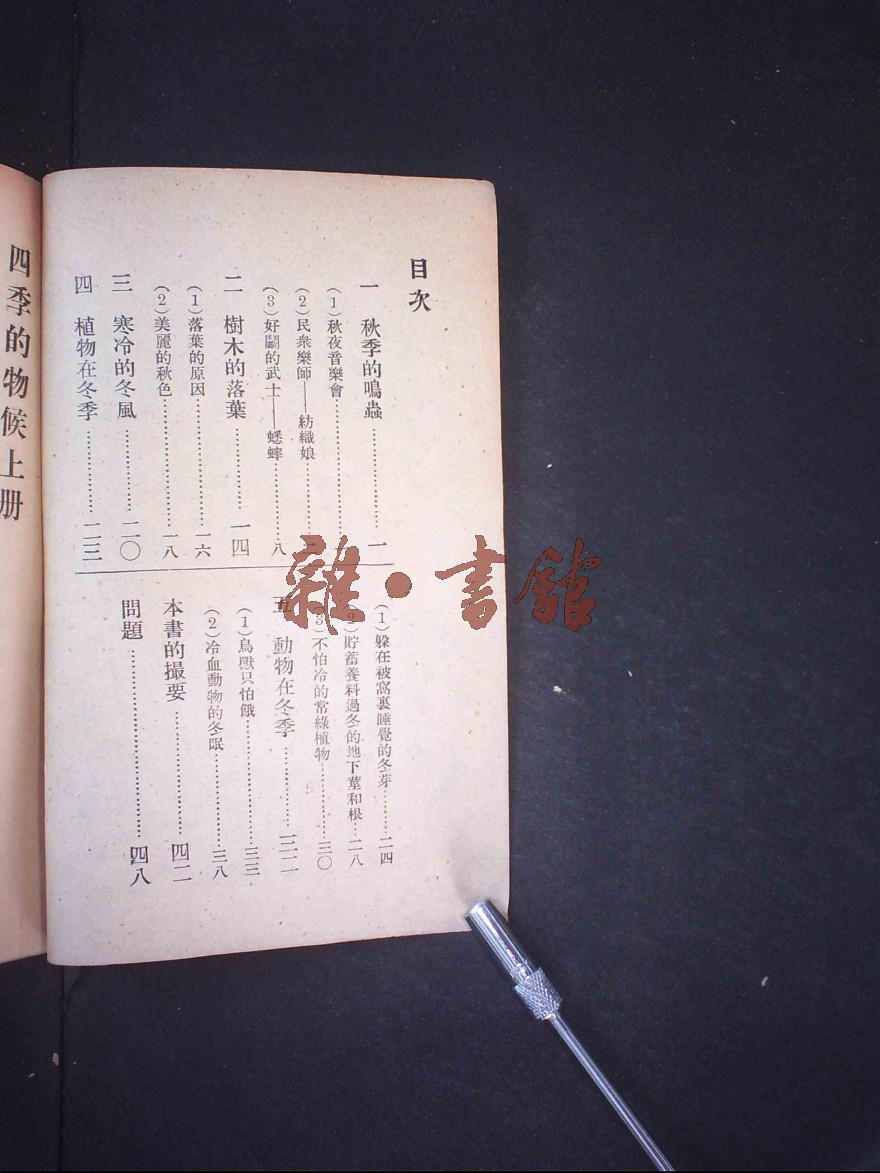 目次
一 秋季的鳴蟲………………一
（1）秋夜音樂會………………
（2）民衆樂師——紡織娘………………
（3）好鬭的武士——蟋蟀………………八
二 樹木的落葉………………一四
（1）落葉的原因………………一六
（2）美麗的秋色………………一八
三 寒冷的冬風………………二〇
四 植物在冬季………………二三
（1）躱在被窩裏睡覺的冬芽………二四
（2）貯蓄養料過冬的地下莖和根…二八
（3）不怕冷的常綠植物………………三〇
五 動物在冬季………………三二
（1）鳥獸只怕餓………………三三
（2）冷血動物的冬眠………………三八
本書的撮要………………四二
問題………………四八
四季的物候上册
雜·書館